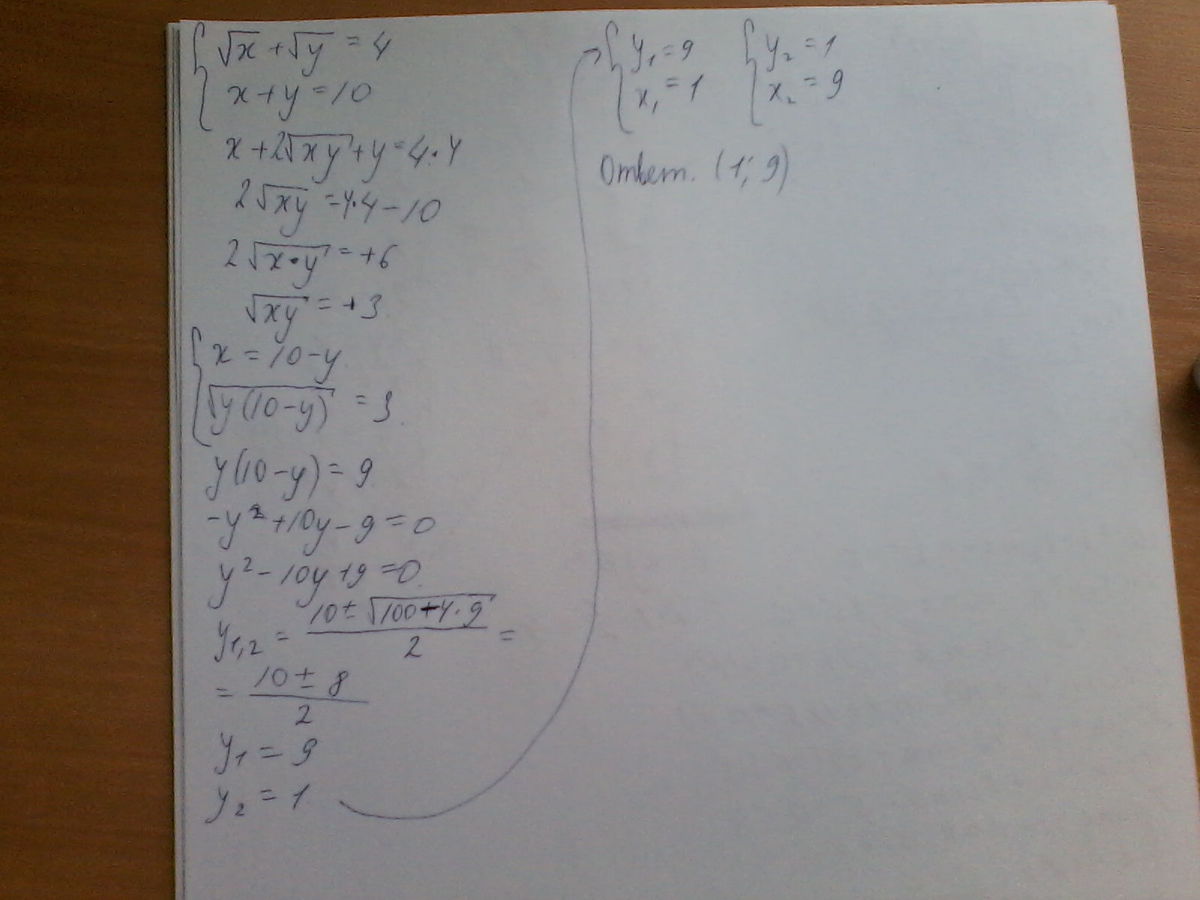 √x + √y = 4
x + y = 10
x + 2√xy + y = 4·4
2√xy = 4·4 - 10
2√x·y = +6
√xy = +3
x = 10 - y
√y(10-y) = 3
y(10-y) = 9
-y² + 10y - 9 = 0
y² - 10y + 9 = 0
y₁,₂ = (10 ± √100+4·9)/2 =
= (10 ± 8)/2
y₁ = 9
y₂ = 1
y₁ = 9 y₂ = 1
x₁ = 1 x₂ = 9
Ответ. (1; 9)